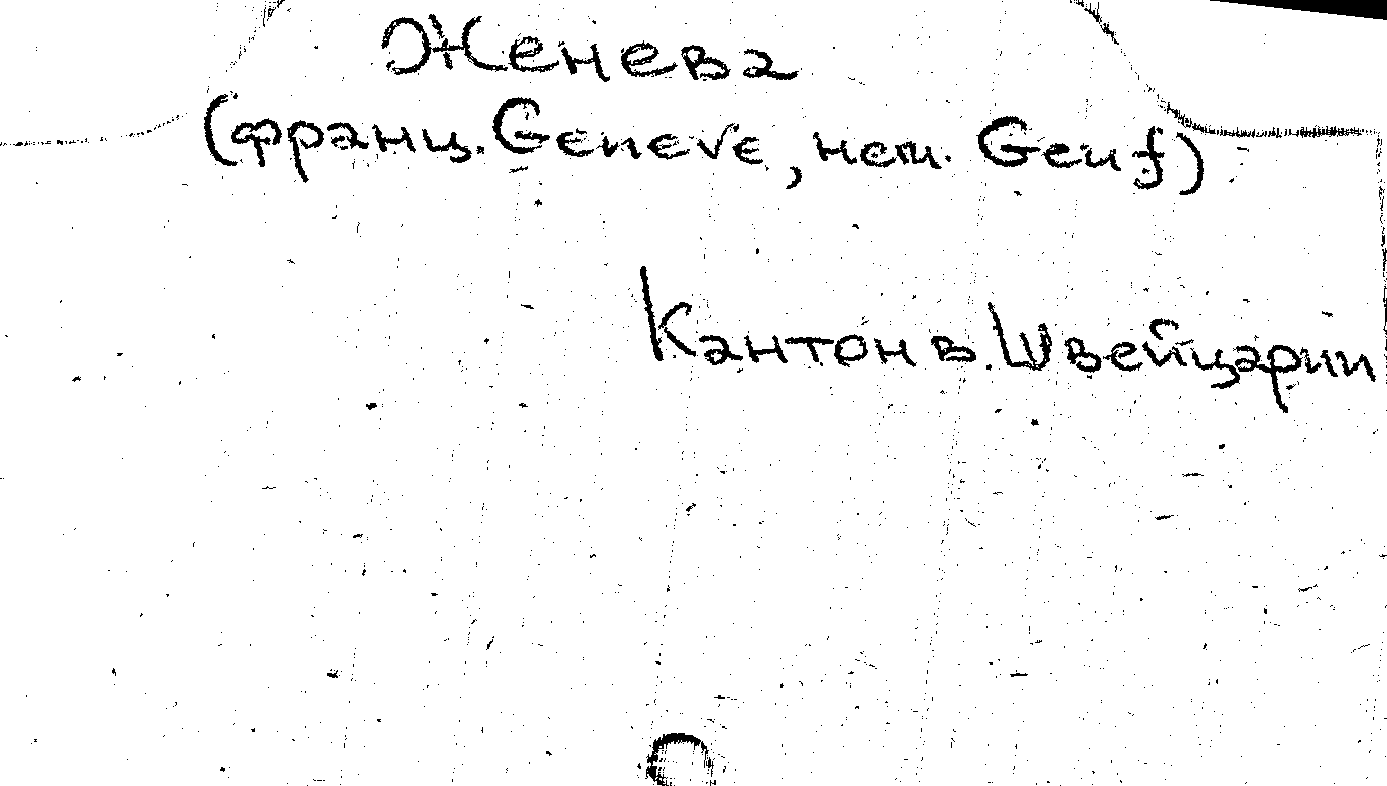 Женева
(франц. Geneve, нем. Genf)
Кантон в. Швейцарии